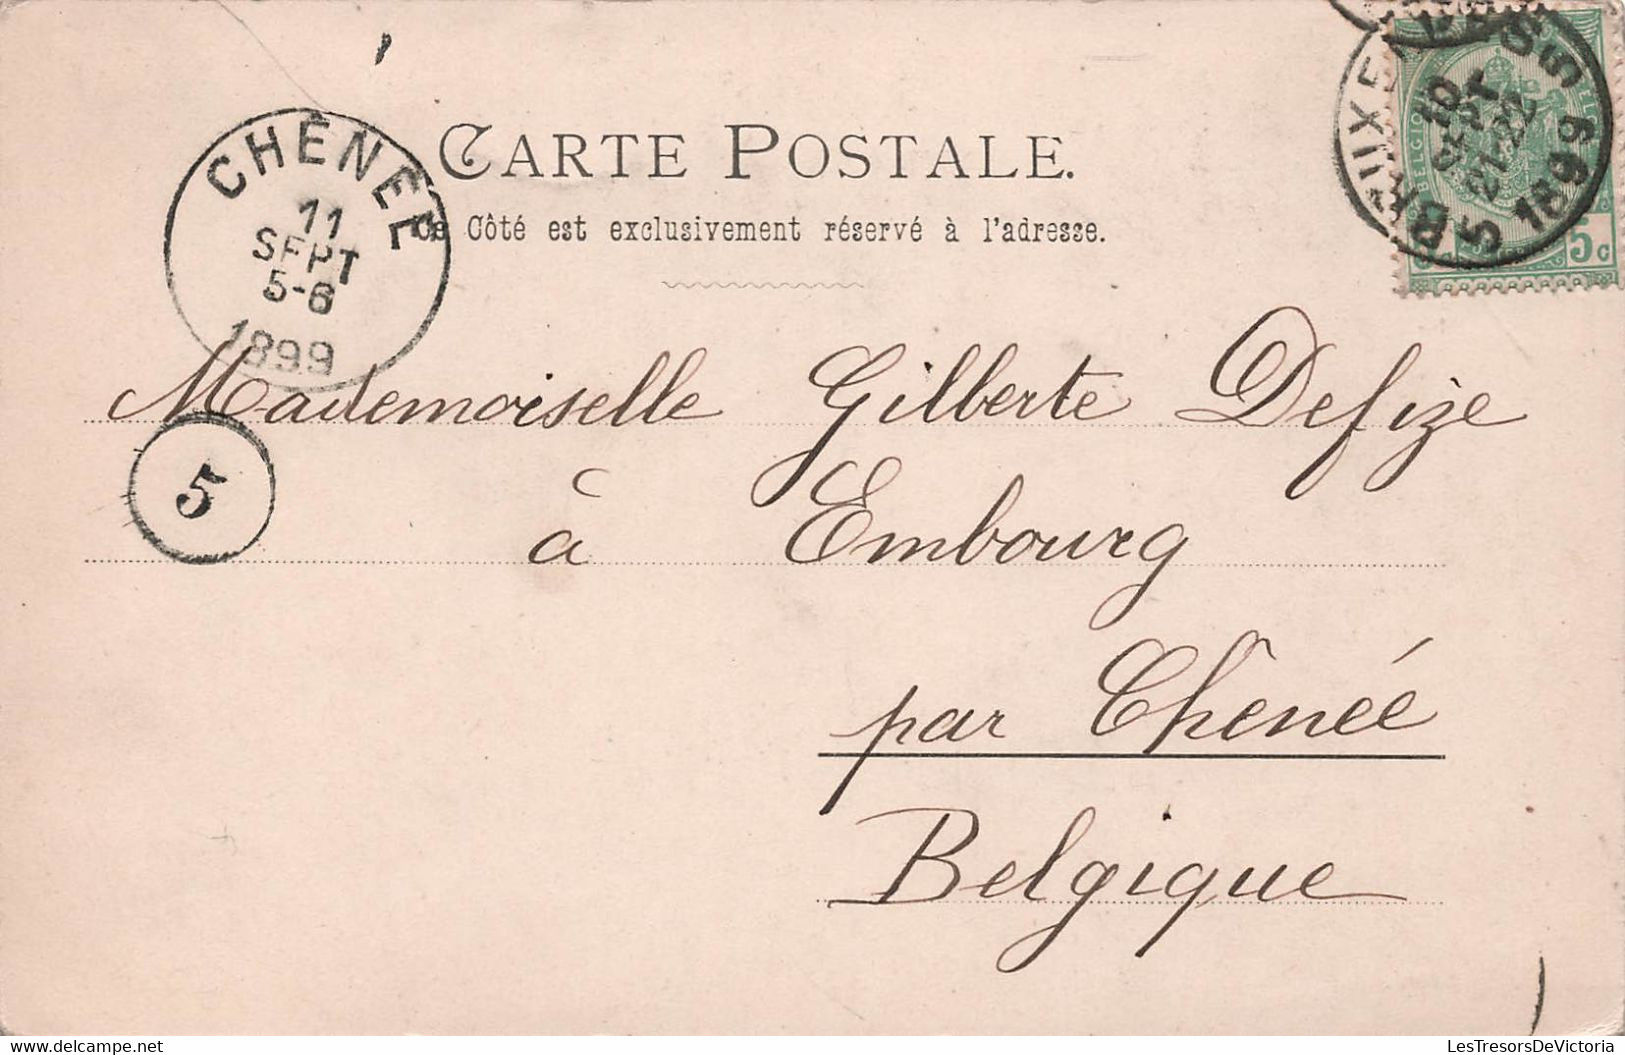 CARTE POSTALE.
Ce Côté est exclusivement réservé à l'adresse.
CHÊNÉE
11
SEPT
5-6
1899
BRUXELLES 5
10
SEPT
21-22
1899
BELGIQUE
5c
Mademoiselle Gilberte Defize
5
à Embourg
par Chênée
Belgique
delcampe.net
LesTresorsDeVictoria